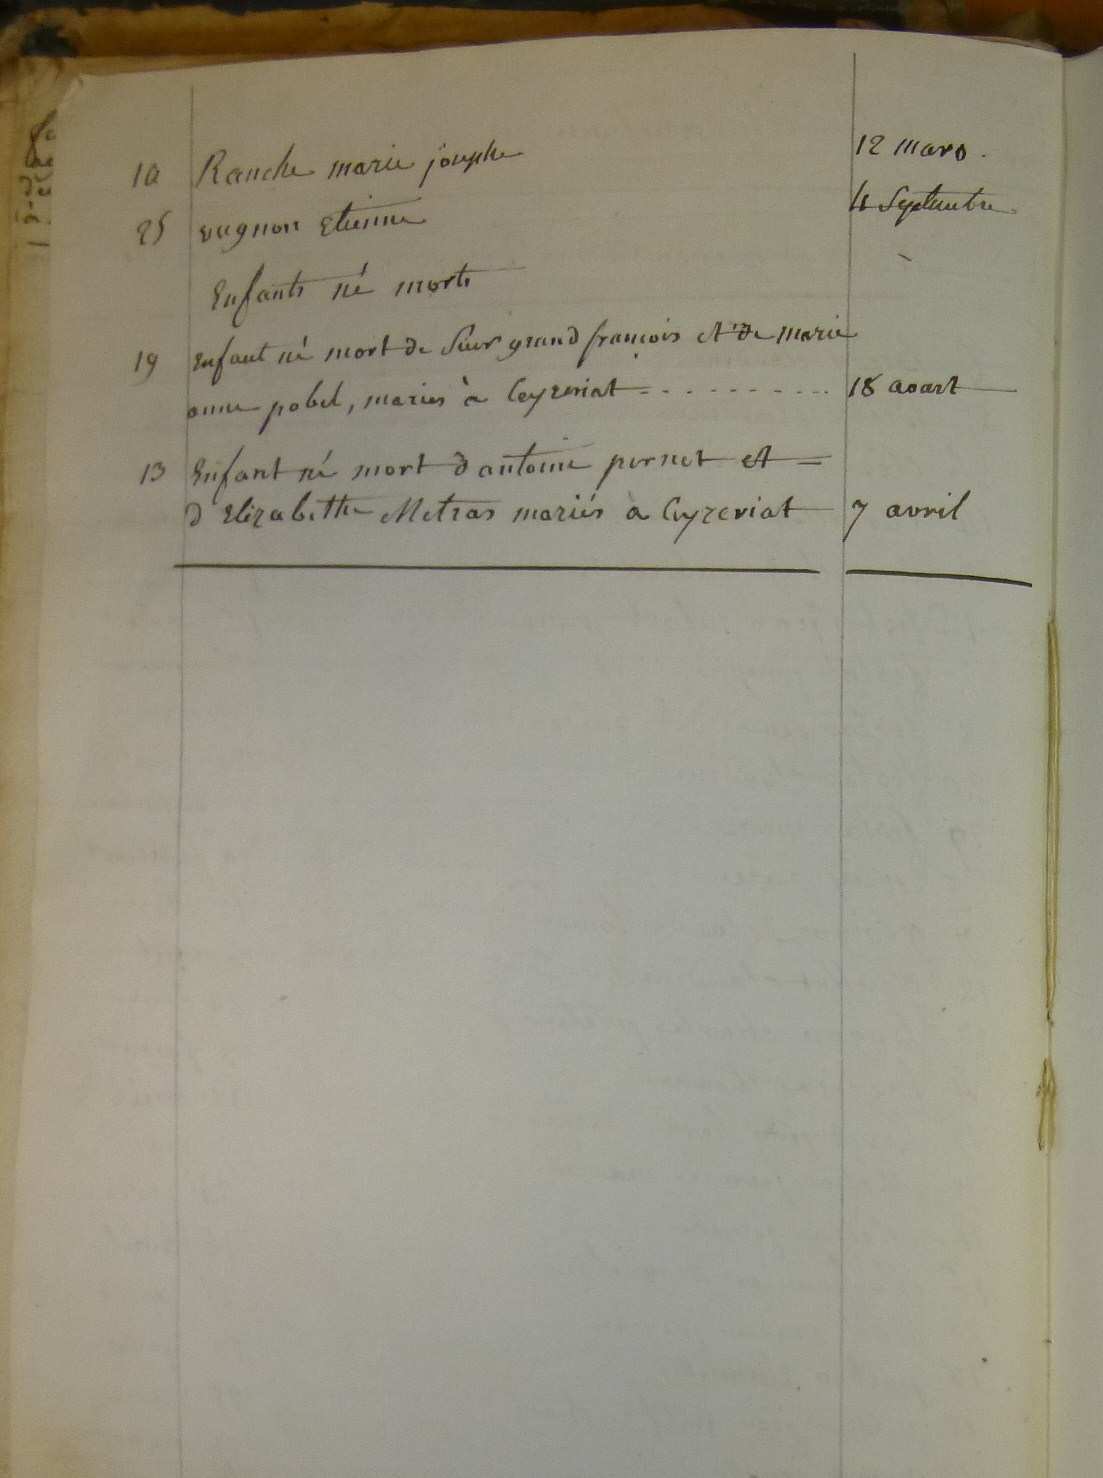 10 Ranche marie josephe 12 mars.
25 vugnon Etienne 4 Septembre
Enfants né morts
19 Enfant né mort de Sieur grand françois et de Marie
anne pobel, mariés à Ceyzeriat 18 aoart
13 Enfant né mort d antoine pernet et
d Elizabethe Metras mariés a Ceyzeriat 7 avril